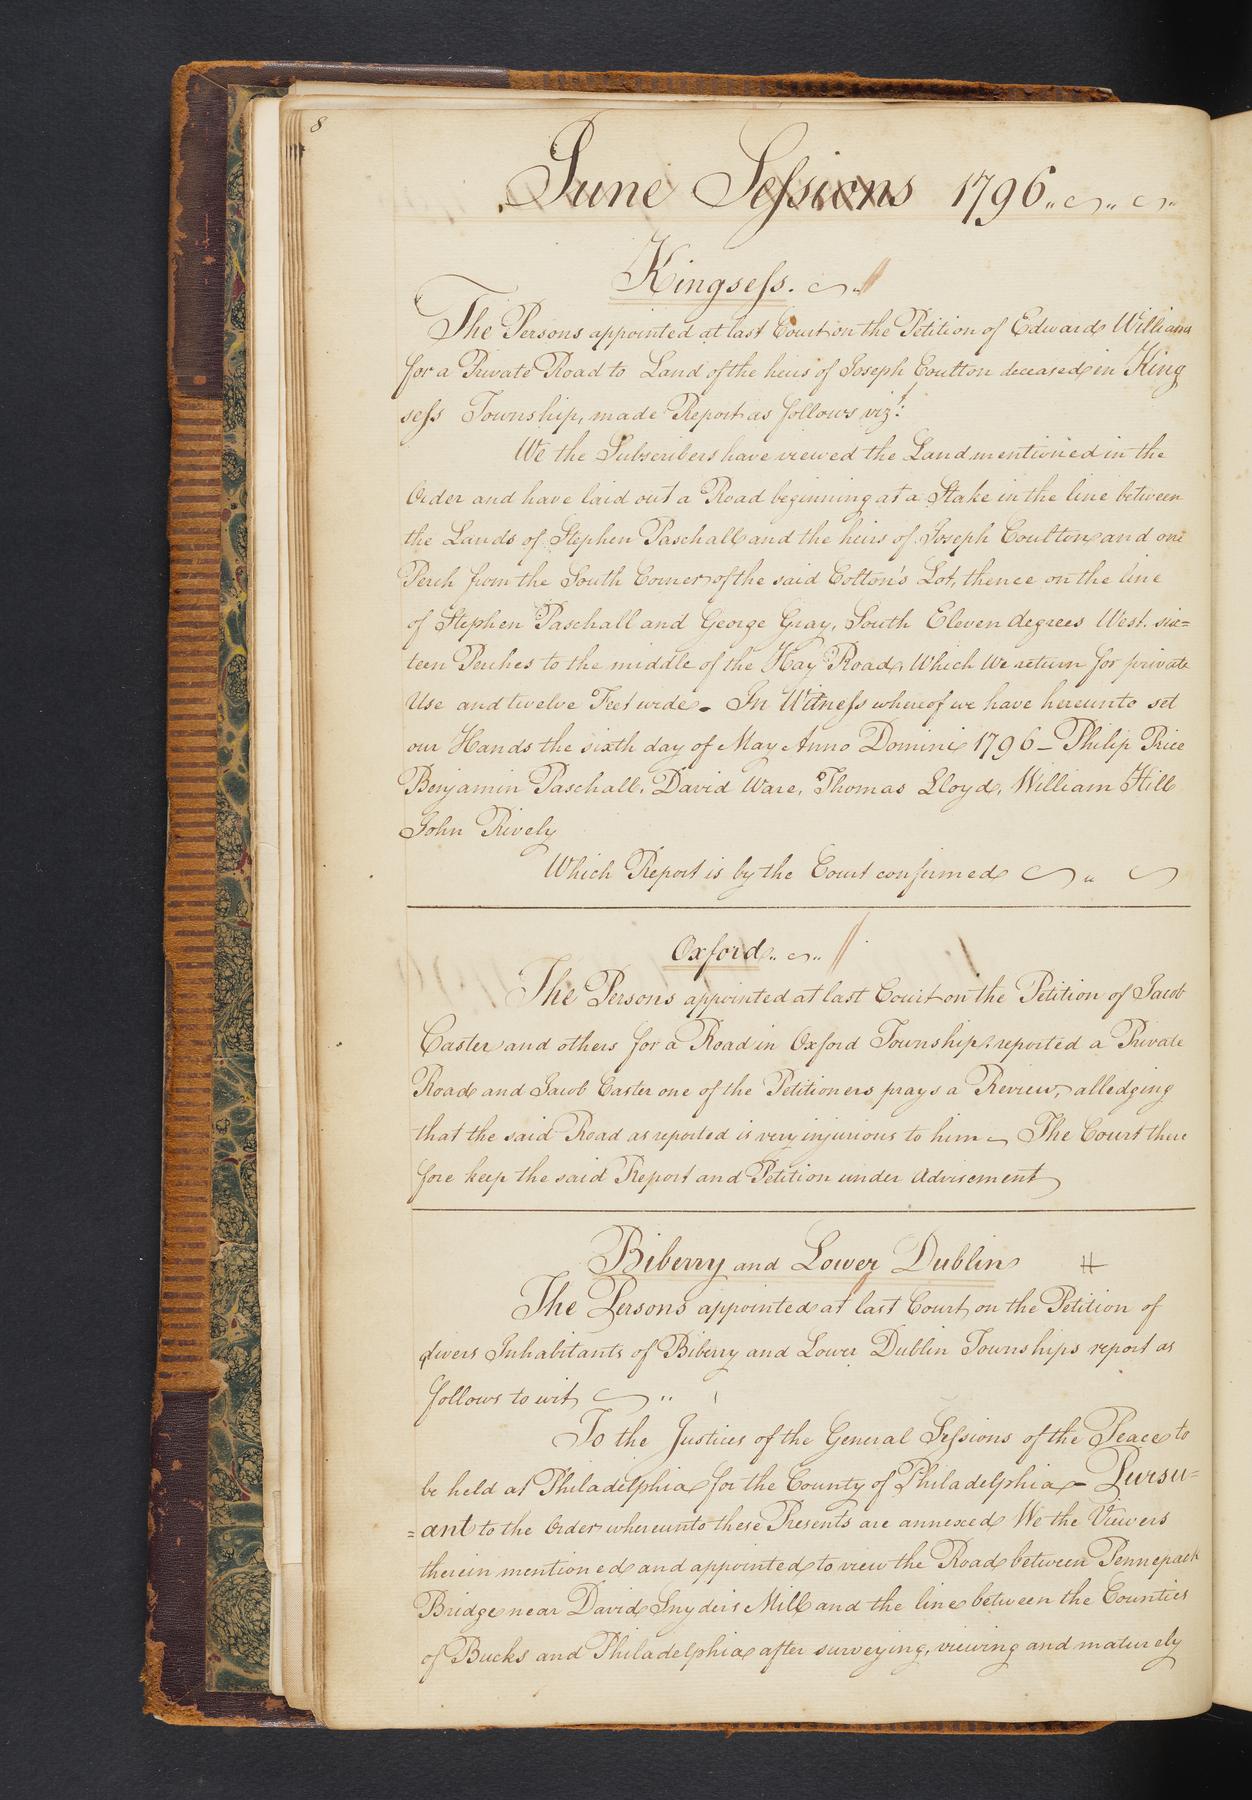 8
June Sessions 1796
Kingsess.
The Persons appointed at last Court on the Petition of Edward Williams
for a Private Road to Land of the heirs of Joseph Coulton deceased in King
sess Township, made Report as follows vizt:
We the Subscribers have viewed the Land mentioned in the
Order and have laid out a Road beginning at a Stake in the line between
the Lands of Stephen Paschall and the heirs of Joseph Coulton and one
Perch from the South Corner of the said Colton's Lot, thence on the line
of Stephen Paschall and George Gray, South Eleven degrees West, six=
teen Perches to the middle of the Hay Road, Which We return for private
Use and twelve Feet wide - In Witness whereof we have hereunto set
our Hands the sixth day of May Anno Domini 1796 - Philip Price
Benjamin Paschall, David Ware, Thomas Lloyd, William Hill
John Rively
Which Report is by the Court confirmed
Oxford
The Persons appointed at last Court on the Petition of Jacob
Caster and others for a Road in Oxford Township, reported a Private
Road and Jacob Caster one of the Petitioners prays a Review, alledging
that the said Road as reported is very injurious to him - The Court there
fore keep the said Report and Petition under Advisement
Biberry and Lower Dublin #
The Persons appointed at last Court on the Petition of
divers Inhabitants of Biberry and Lower Dublin Townships report as
follows to wit
To the Justices of the General Sessions of the Peace to
be held at Philadelphia for the County of Philadelphia - Pursu=
=ant to the Order whereunto these Presents are annexed We the Viewers
therein mentioned and appointed to view the Road between Pennepack
Bridge near David Snyders Mill and the line between the Counties
of Bucks and Philadelphia after surveying, viewing and maturely